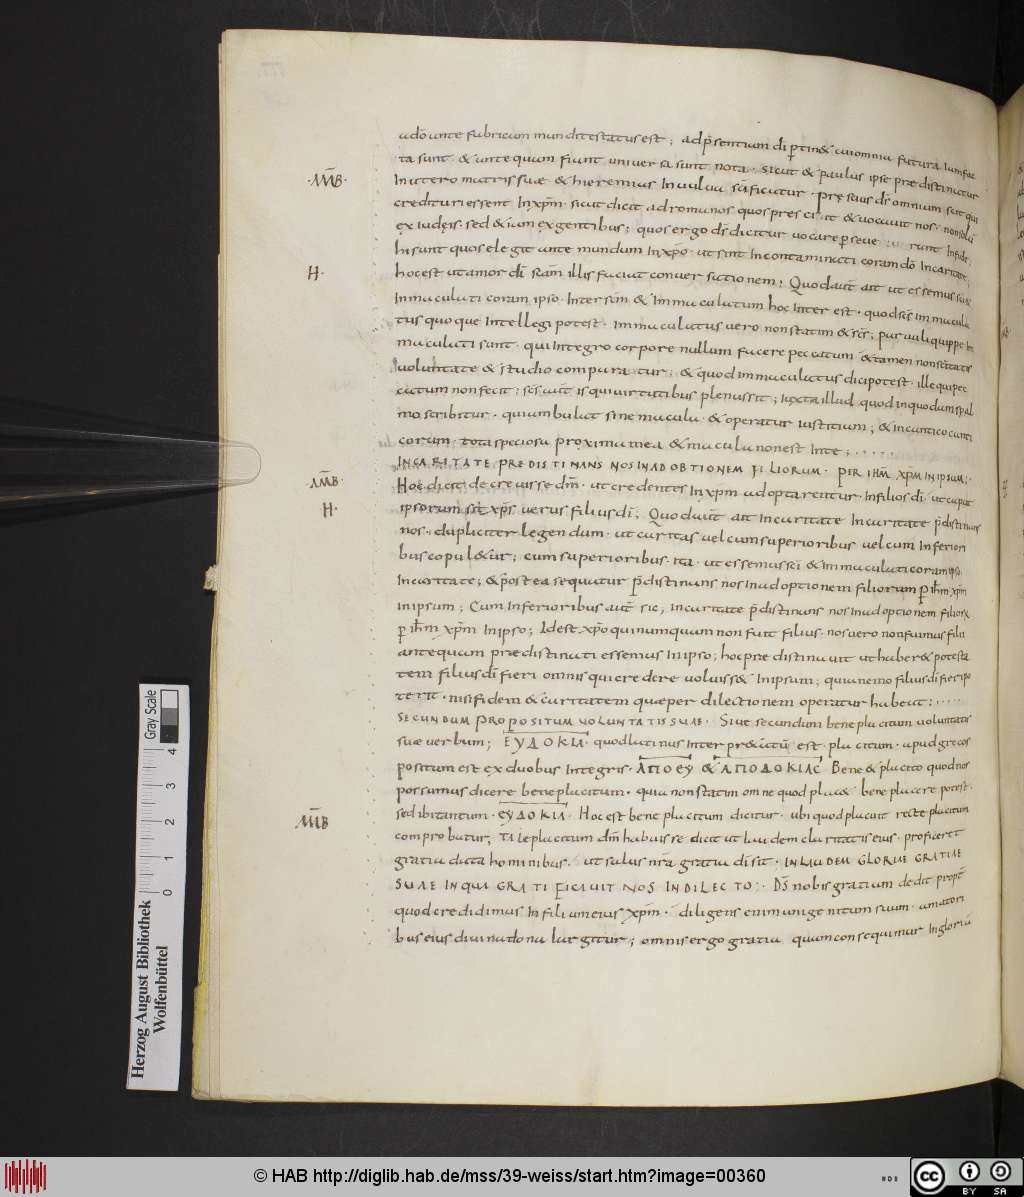 a dō ante fabricam mundi testatus est; ad p̄sentiam dī p̄tin& cui omnia futura iam fac
ta sunt · & ante quam fiant universa sunt nota · sicut & paulus ipse prædistinatur
·AMB·
In utero matris suæ & hieremias In uulua sc̄ificatur · pręscius dr̄ omnium scit qui
credituri essent In xpm̄ · sicut dicit ad romanos quos presciit & uocauit nos · non solū
ex iudęis · sed & iam ex gentibus; quos ergo dr̄ dicitur uocare perseuerarunt In fide;
hi sunt quos elegit ante mundum In xpō · ut sint Incontaminati coram dō In caritate;
·H·
hoc est ut amor dī scam̄ illis faciat conuersationem; Quod aut̄ ait ut essemus sc̄i &
Inmaculati coram ipso · Inter scm̄ & Immaculatum hoc Inter est · quod sc̄s immacula
tus quoque Intellegi potest · immaculatus uero non statim & sc̄s; paruuli quippe In
maculati sunt · qui Integro corpore nullum facere peccatum · & tamen non sc̄i ·
uoluntate & studio comparatur; & quod immaculatus dici potest · ille qui pec
catum non fecit; sc̄s aut̄ is qui uirtutibus plenus sit; iuxta illud quod in quodam psal
mo scribitur · qui ambulat sine macula · & operatur iustitiam; & in cantico canti
corum · tota speciosa proxima mea & macula non est In te; · · · · ·
INCARITATE PREDISTINANS NOS INADOBTIONEM FILIORUM · PER IHM̄ XPM̄ IN IPSUM;
·AMB·
Hoc dicit decreuisse dm̄ · ut credentes In xpm̄ adoptarentur · In filios dī · ut caput
·H·
ipsorum sit xps̄ uerus filius dī; Quod aut̄ ait In caritate In caritate p̄distinans
nos · dupliciter legendum · ut caritas uel cum superioribus uel cum Inferiori
bus copul&ur; cum superioribus · ita · ut essemus sc̄i & Immaculati coram ipso
In caritate; & postea sequatur p̄distinans nos In adoptionem filiorum p̄ ihm̄ xpm̄
In ipsum; Cum Inferioribus aut̄ sic, In caritate p̄distinans nos In adoptionem filiorū
p̄ ihm̄ xpm̄ In ipso; Id est xpō qui numquam non fuit filius · nos uero non fuimus filii
antequam prædistinati essemus In ipso; hoc prædistinauit ut haber& potesta
tem filius dī fieri omnis qui credere uoluiss& In ipsum; quia nemo filius dī fieri po
terit · nisi fidem & caritatem quæ per dilectionem operatur habeat: · · · ·
SECUNDUM PROPOSITUM UOLUNTATIS SUAE · Siue secundum bene placitum uoluntatis
suæ uerbum; ΕΥΔΟΚΙΑ · quod latinus Interpr&atū est placitum · apud grecos
positum est ex duobus Integris · ΑΠΟ ΕΥ & ΑΠΟ ΔΟΚΙΑϹ Bene & placito quod nos
possumus dicere bene placitum · quia non statim omne quod plac& bene placere potest ·
sed ibi tantum · ΕΥΔΟΚΙΑ · Hoc est bene placitum dicitur · ubi quod placuit recte placitum
·AMB
comprobatur; Tale placitum dm̄ habuisse dicit ut laudem claritatis eius · proficerit
gratia data hominibus · ut salus nrā gratia dī sit · IN LAUDEM GLORIAE GRATIAE
SUAE IN QUA GRATIFICAUIT NOS IN DILECTO; · Ds̄ nobis gratiam dedit propt̄
quod credidimus In filium eius xpm̄ · diligens enim unigenitum suum · amatori
bus eius diuina dona largitur; omnis ergo gratia quam consequimur In gloriā
Herzog August Bibliothek
Wolfenbüttel
0 1 2 3 4 Gray Scale
© HAB http://diglib.hab.de/mss/39-weiss/start.htm?image=00360
cc BY SA